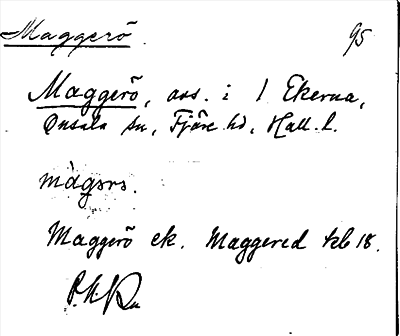 Maggerö. 95
Maggerö, avs. i 1 Ekerna,
Onsala sn, Fjäre hd, Hall. l.
màgərə.
Maggerö ek. Maggered kb 18.